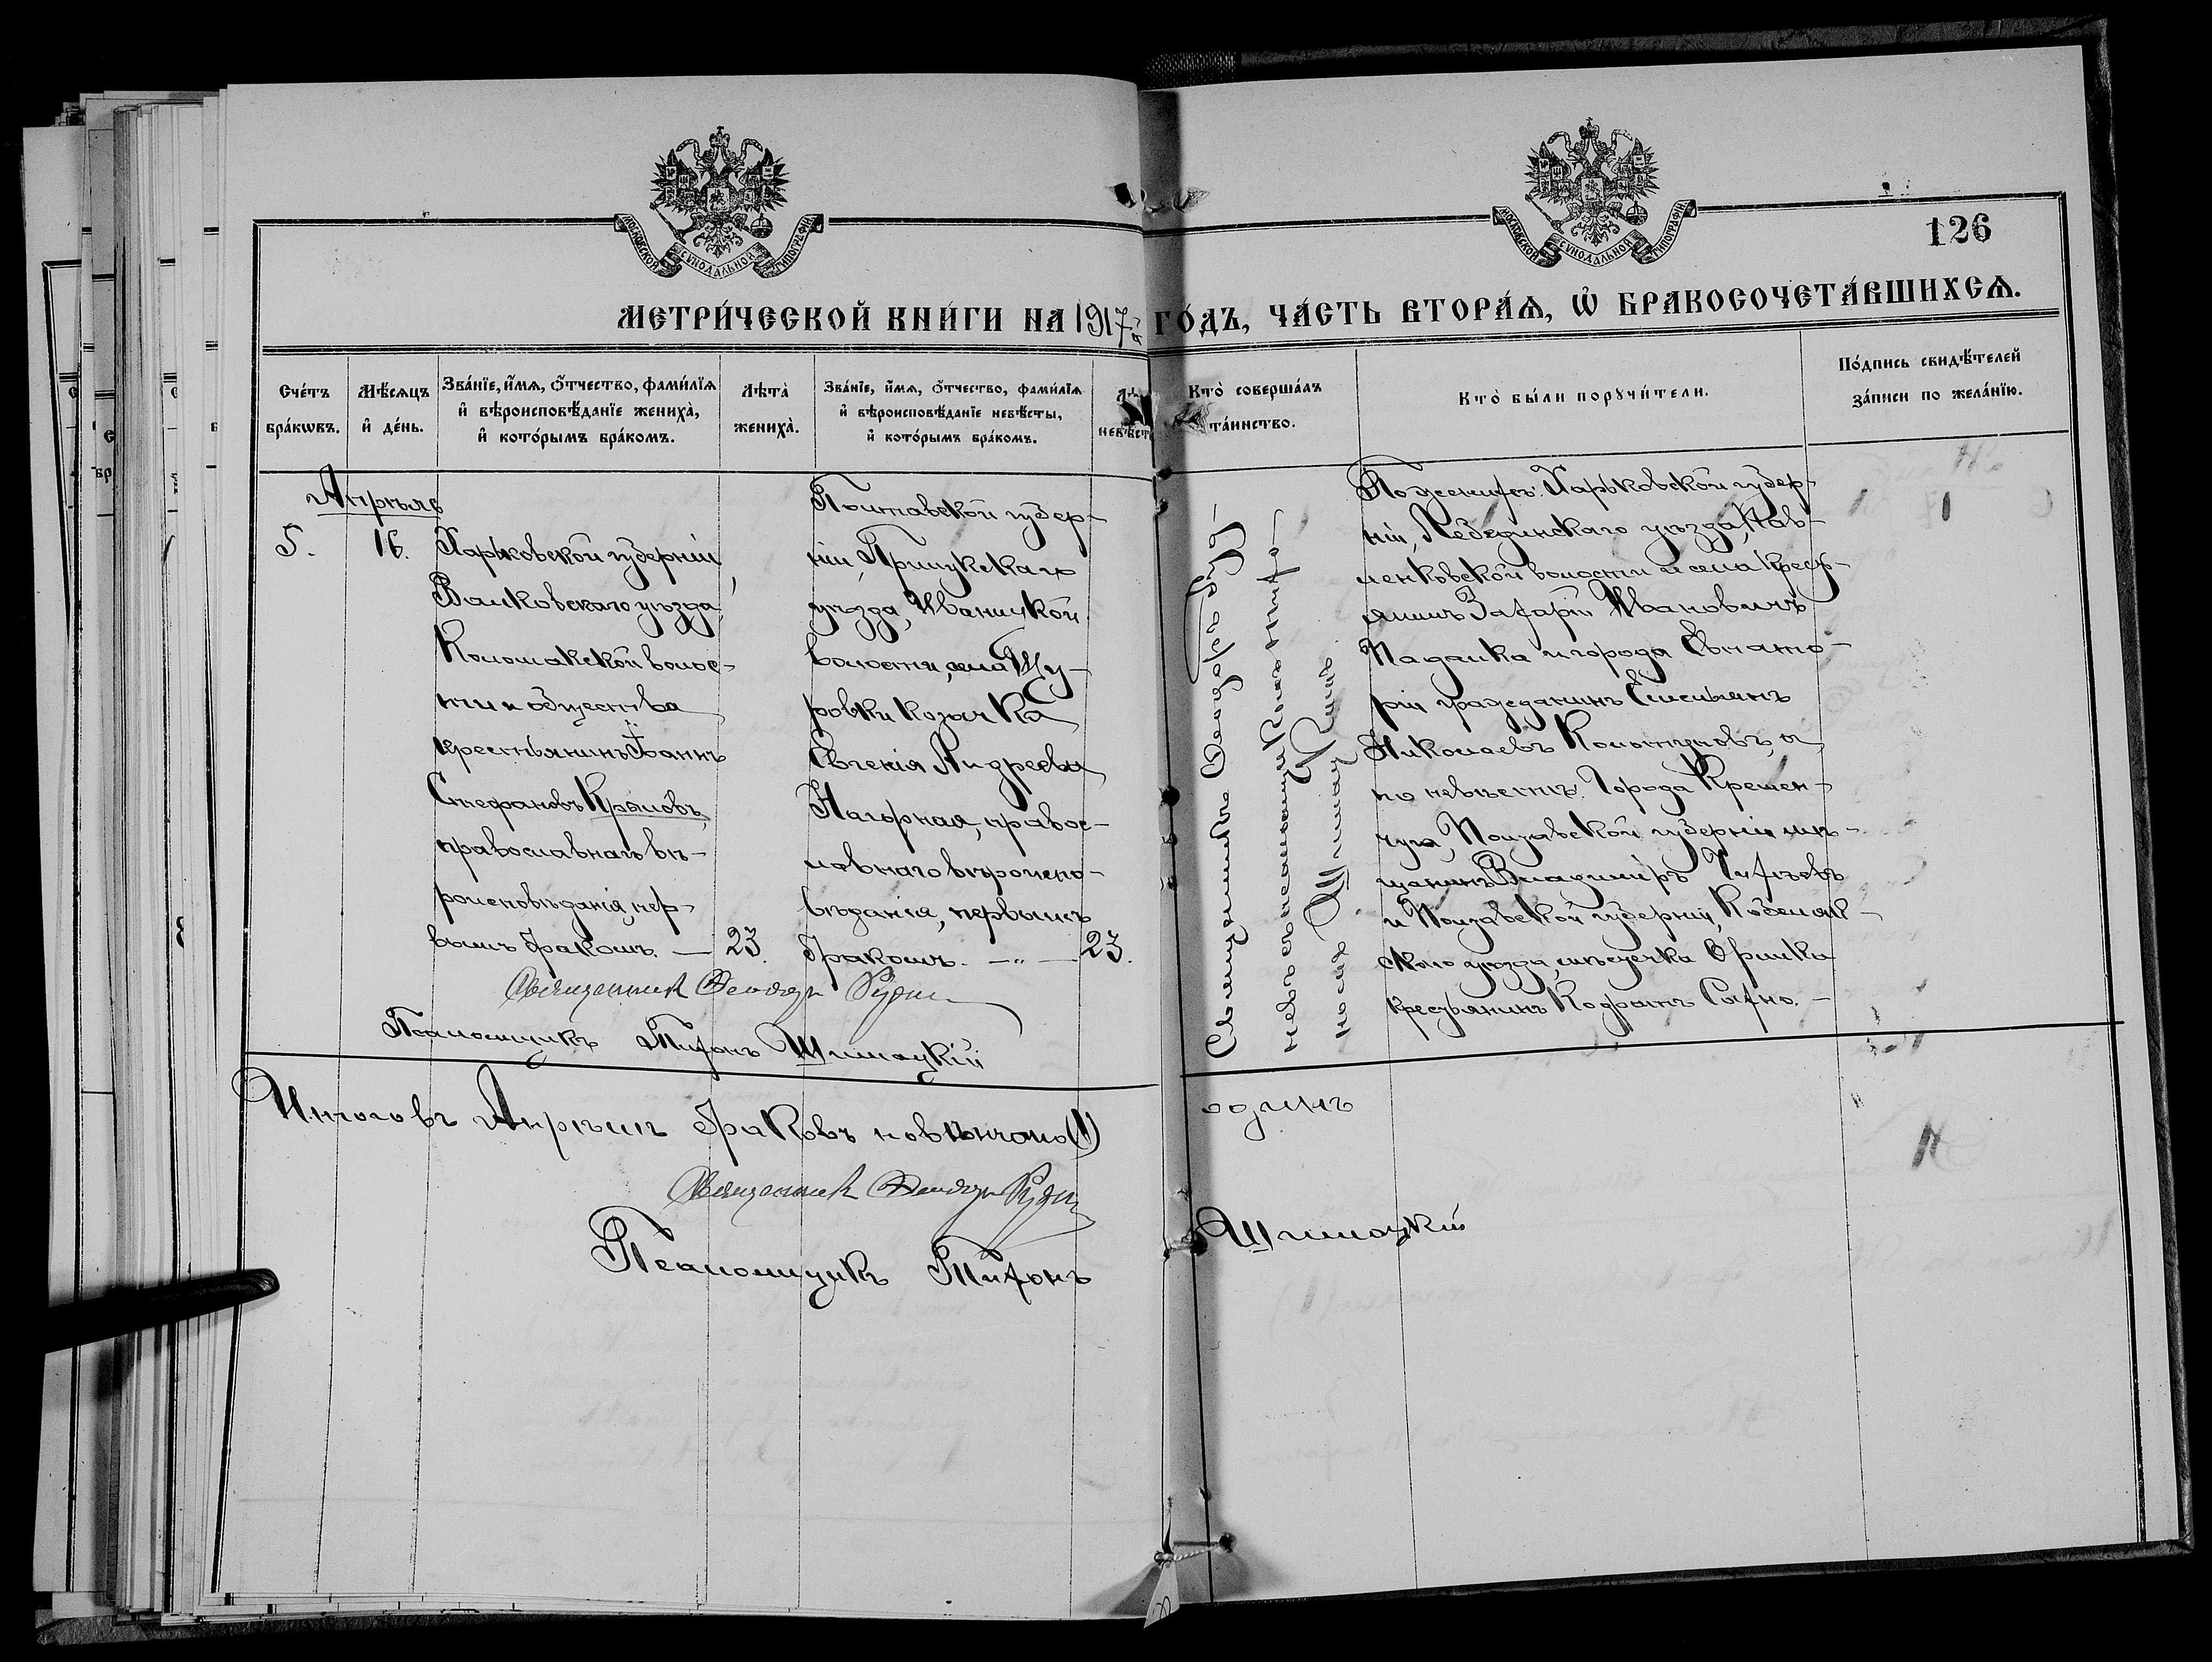 МОСКОВСКОЙ СУНОДАЛЬНОЙ ТИПОГРАФІИ
МОСКОВСКОЙ СУНОДАЛЬНОЙ ТИПОГРАФІИ
126
МЕТРИ́ЧЕСКОЙ КНИ́ГИ НА 1917 ГО́ДЪ, ЧА́СТЬ ВТОРА́Ѧ, Ѡ҆ БРАКОСОЧЕТА́ВШИХСѦ.
Сче́тъ бра́кѡвъ.
Мѣ́сѧцъ и҆ де́нь.
Зва́нїе, и҆́мѧ, ѻ҆́тчество, фами́лїѧ
и҆ вѣроисповѣ́данїе жениха̀,
и҆ кото́рымъ бра́комъ.
Лѣ́та̀ жениха̀.
Зва́нїе, и҆́мѧ, ѻ҆́тчество, фами́лїѧ
и҆ вѣроисповѣ́данїе невѣ́сты,
и҆ кото́рымъ бра́комъ.
невѣ́сты
Кто̀ соверша́лъ
та́инство.
Кто̀ бы́ли порꙋчи́тели.
По́дпись свидѣ́телей
за́писи по жела́нїю.
Апрѣль
5.
16.
Харьковской губерніи
Валковскаго уѣзда,
Коломакской волос-
ти и общества
крестьянинъ Іоаннъ
Стефановъ Крыловъ,
православнаго вѣ-
роисповѣданія, пер-
вымъ бракомъ. —
23.
Полтавской губер-
ніи, Прилукскаго
уѣзда, Иваницкой
волости, села Щу-
ровки козачка
Евгенія Андреева
Нагорная, правос-
лавнаго вѣроиспо-
вѣданія, первымъ
бракомъ. — „ —
23.
Священникъ Ѳеодоръ Руди-
невъ съ псаломщикомъ Тихо-
номъ Шимацкимъ
По женихѣ: Харьковской губер-
ніи, Лебединскаго уѣзда, Пав-
ленковской волости и села крест-
янинъ Захарій Ивановичъ
Падалка и города Евпато-
ріи гражданинъ Емельянъ
Николаевъ Колотуновъ, а
по невѣстѣ: Города Кремен-
чуга, Полтавской губерніи мѣ-
щанинъ Владиміръ
и Полтавской губерніи, Кобеляк-
скаго уѣзда, мѣстечка Орлика
крестьянинъ Кодратъ Сахно. —
Священникъ Ѳеодоръ
Псаломщикъ Тихонъ Шимацкій
Итого въ Апрѣлѣ браковъ повѣнчано (1) одинъ
Священникъ Ѳеодоръ
Псаломщикъ Тихонъ Шимацкій